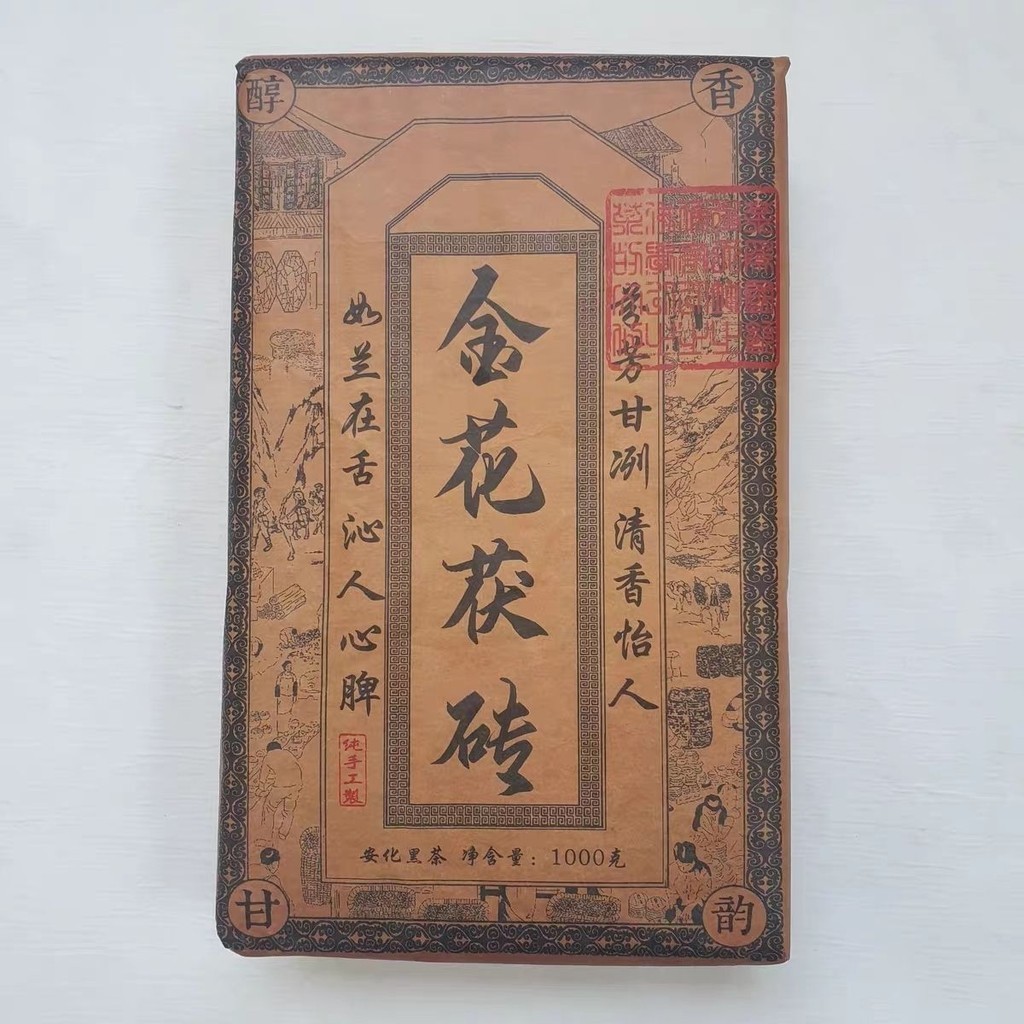 醇
香
金花茯砖
芳甘冽 清香怡人
如兰在舌 沁人心脾
纯手工製
安化黑茶 净含量：1000克
甘
韵